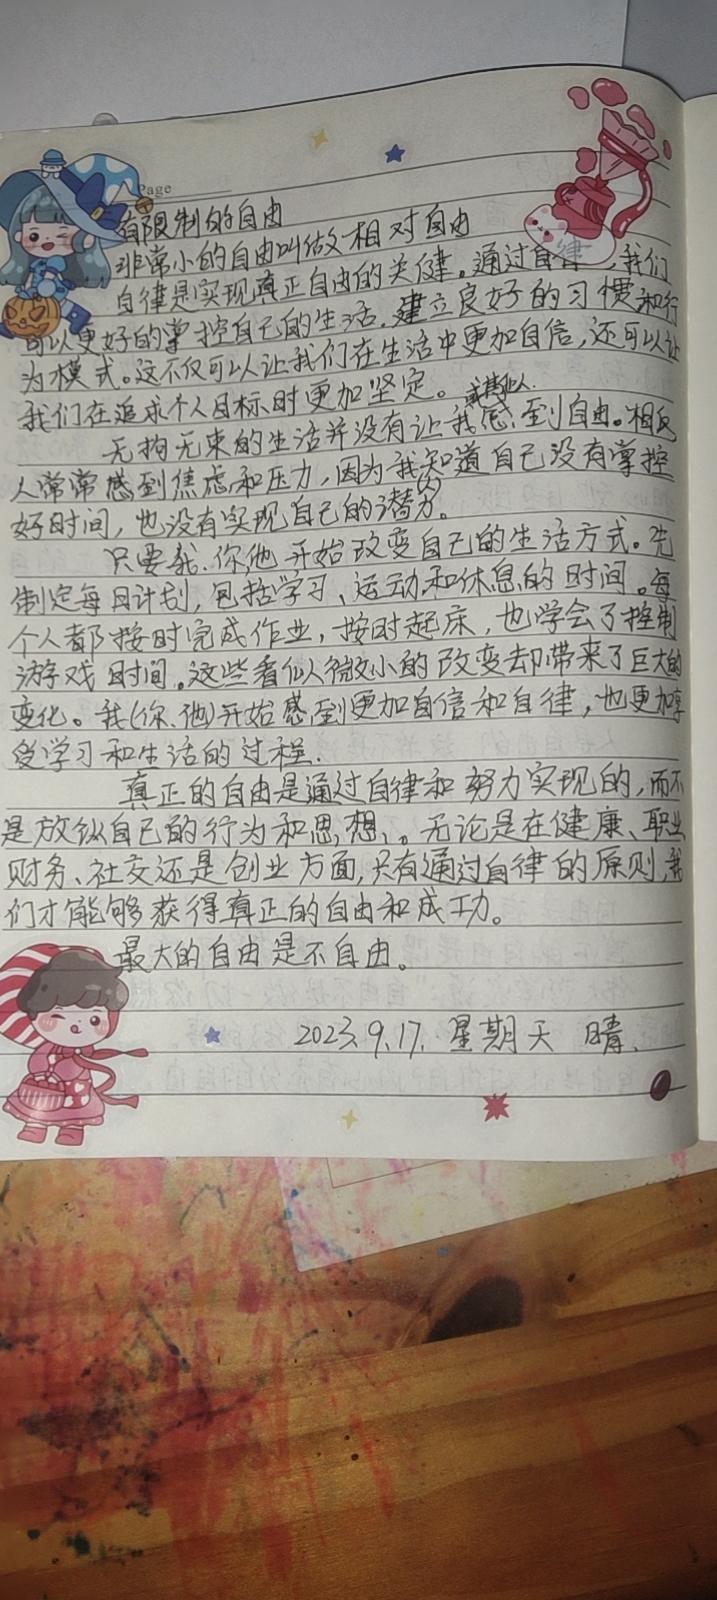 Page
有限制的自由
非常小的自由叫做相对自由
自律是实现真正自由的关健。通过自律,我们
可以更好的掌控自己的生活.建立良好的习惯和行
为模式。这不仅可以让我们在生活中更加自信,还可以让
我们在追求个人目标时更加坚定。
或其他人.
无拘无束的生活并没有让我感到自由。相反
人常常感到焦虑和压力,因为我知道自己没有掌控
好时间,也没有实现自己的潜力。
只要我.你,他开始改变自己的生活方式。先
制定每日计划,包括学习、运动和休息的时间。每
个人都按时完成作业,按时起床,也学会了控制
游戏时间。这些看似微小的改变却带来了巨大的
变化。我(你、他)开始感到更加自信和自律,也更加享
受学习和生活的过程.
真正的自由是通过自律和努力实现的,而不
是放纵自己的行为和思想、。无论是在健康、职业
财务、社交还是创业方面,只有通过自律的原则,我
们才能够获得真正的自由和成功。
最大的自由是不自由。
2023.9.17.星期天 晴.